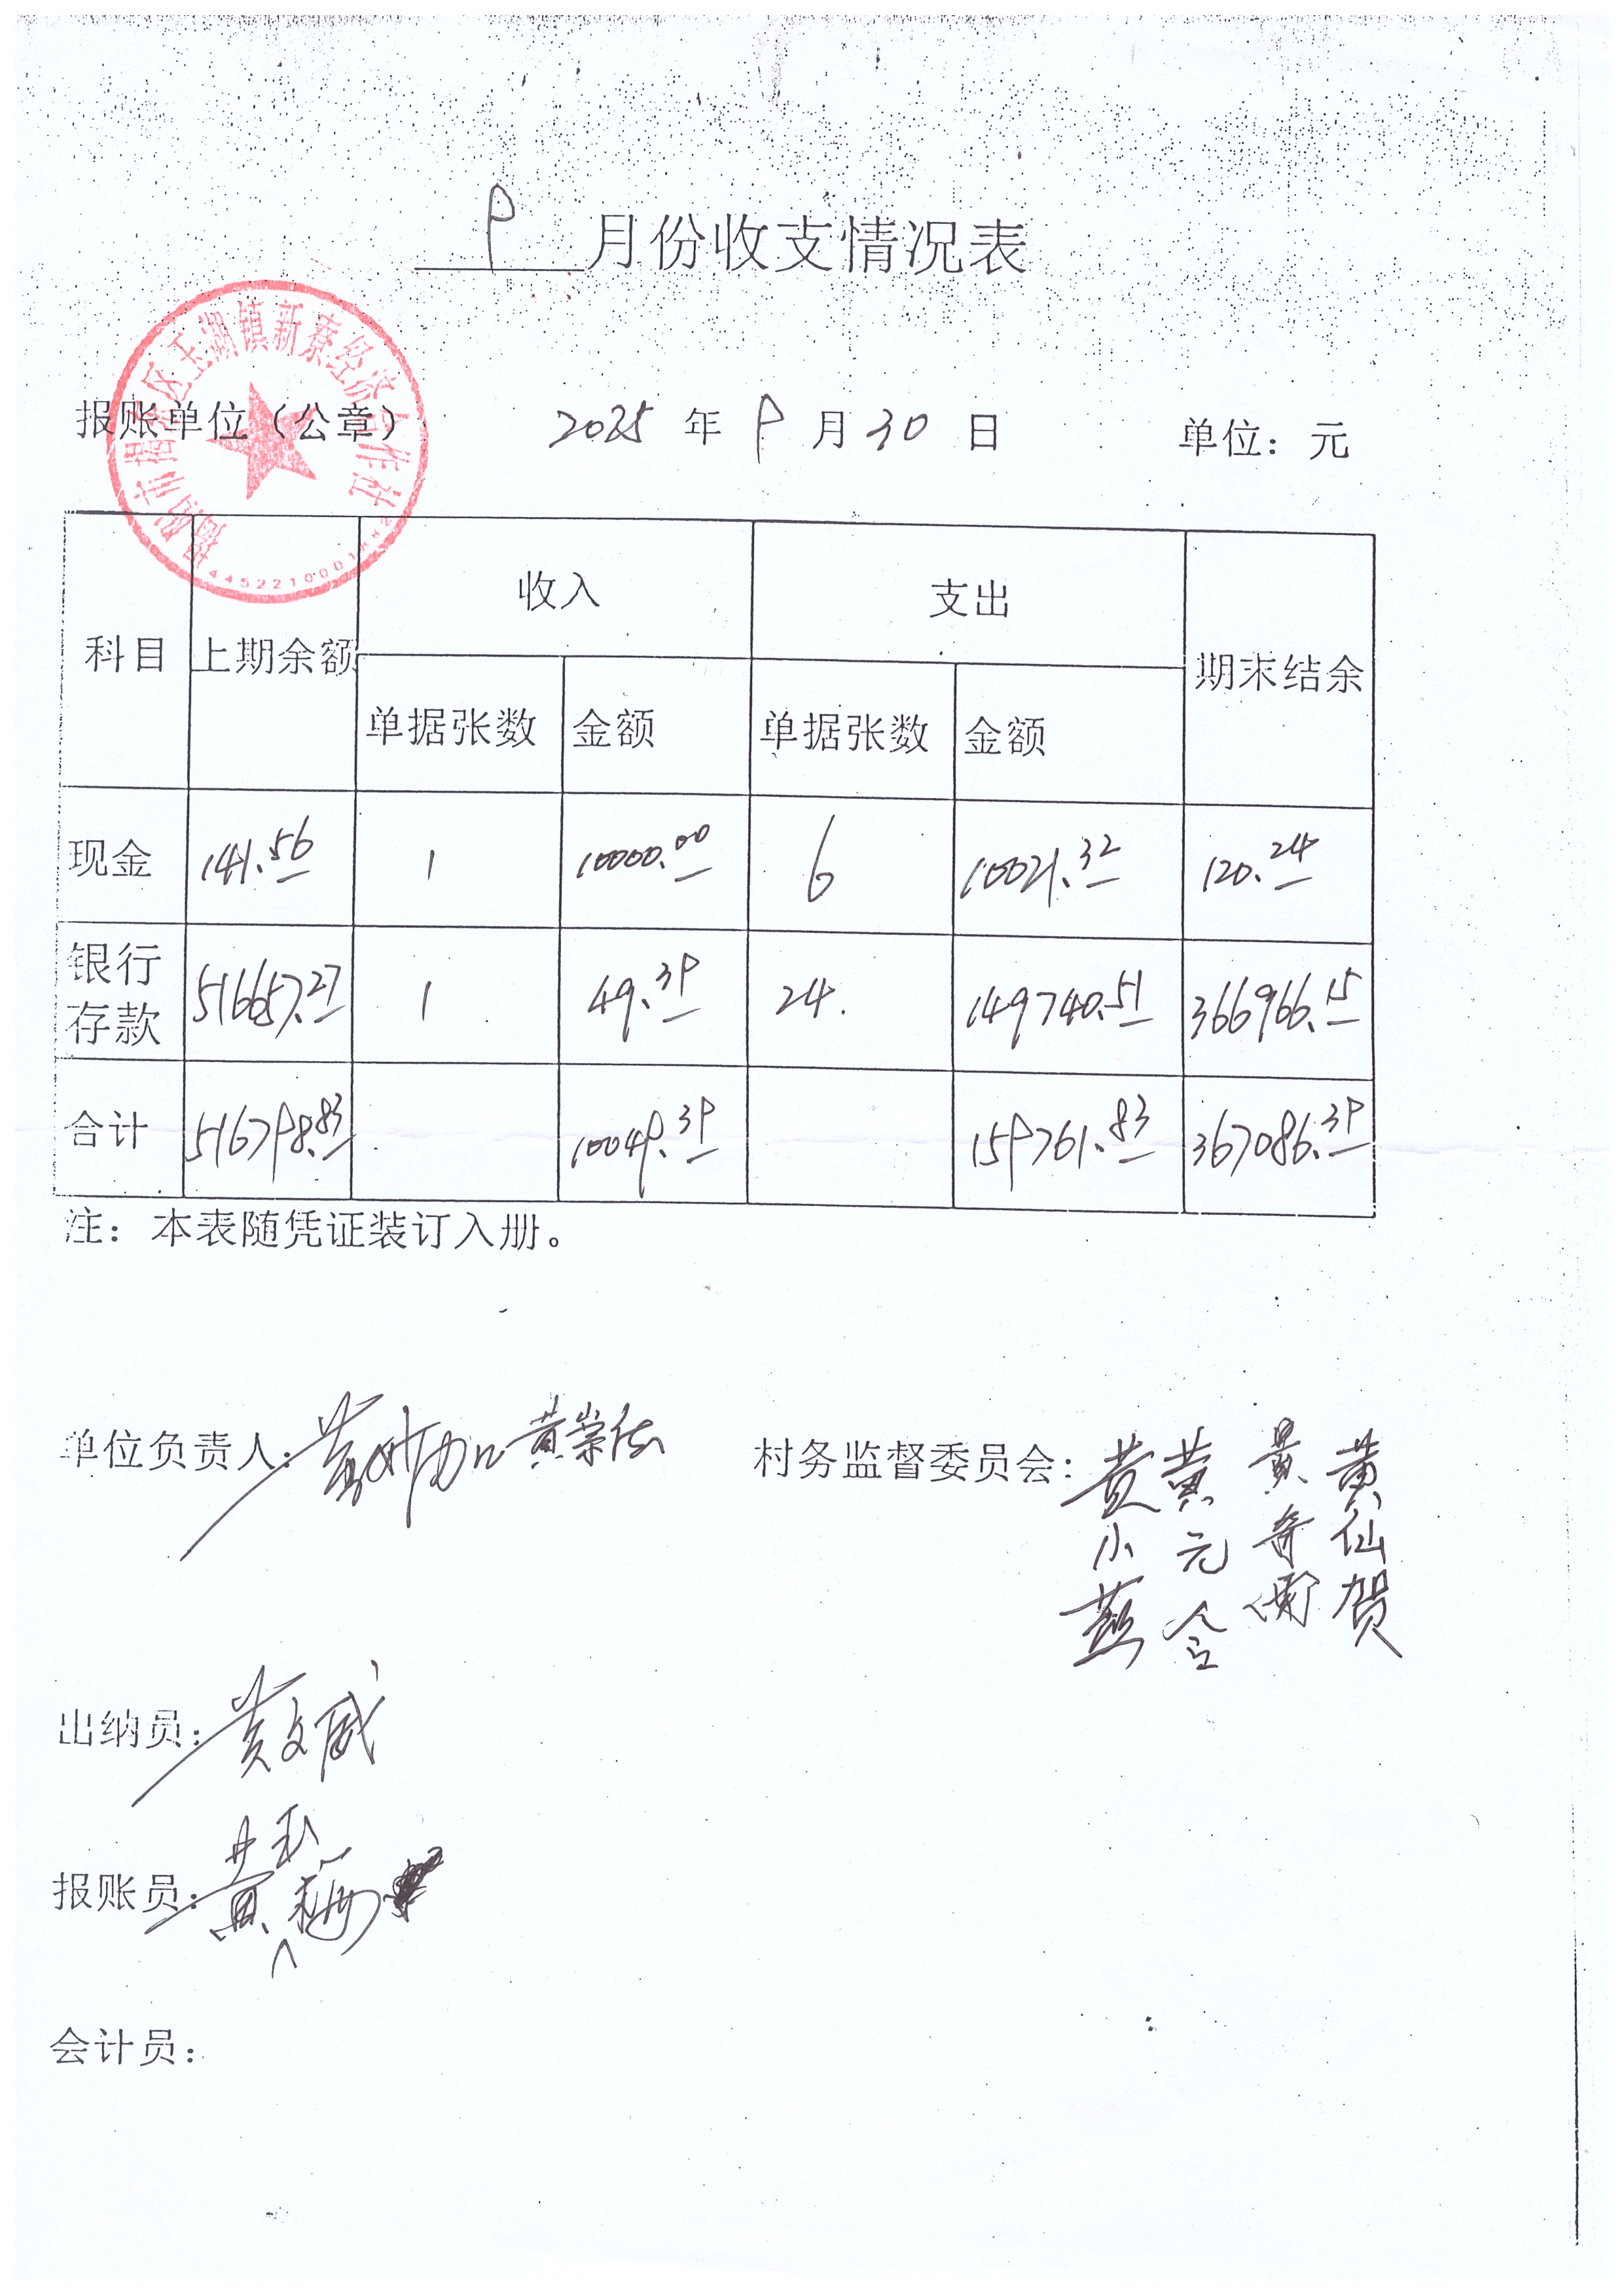 9月份收支情况表
揭阳市揭东区玉湖镇新寮经济合作社
报账单位（公章） 2025 年 9 月 30 日 单位：元
科目 上期余额 收入 支出 期末结余
单据张数 金额 单据张数 金额
现金 141.56 1 10000.00 6 10021.32 120.24
银行存款 516657.27 1 49.39 24. 149740.51 366966.15
合计 516798.83 10049.39 159761.83 367086.39
注：本表随凭证装订入册。
单位负责人： 黄崇德 村务监督委员会：黄小燕 黄元合 黄 黄仙贺
出纳员：黄文威
报账员：黄
会计员：